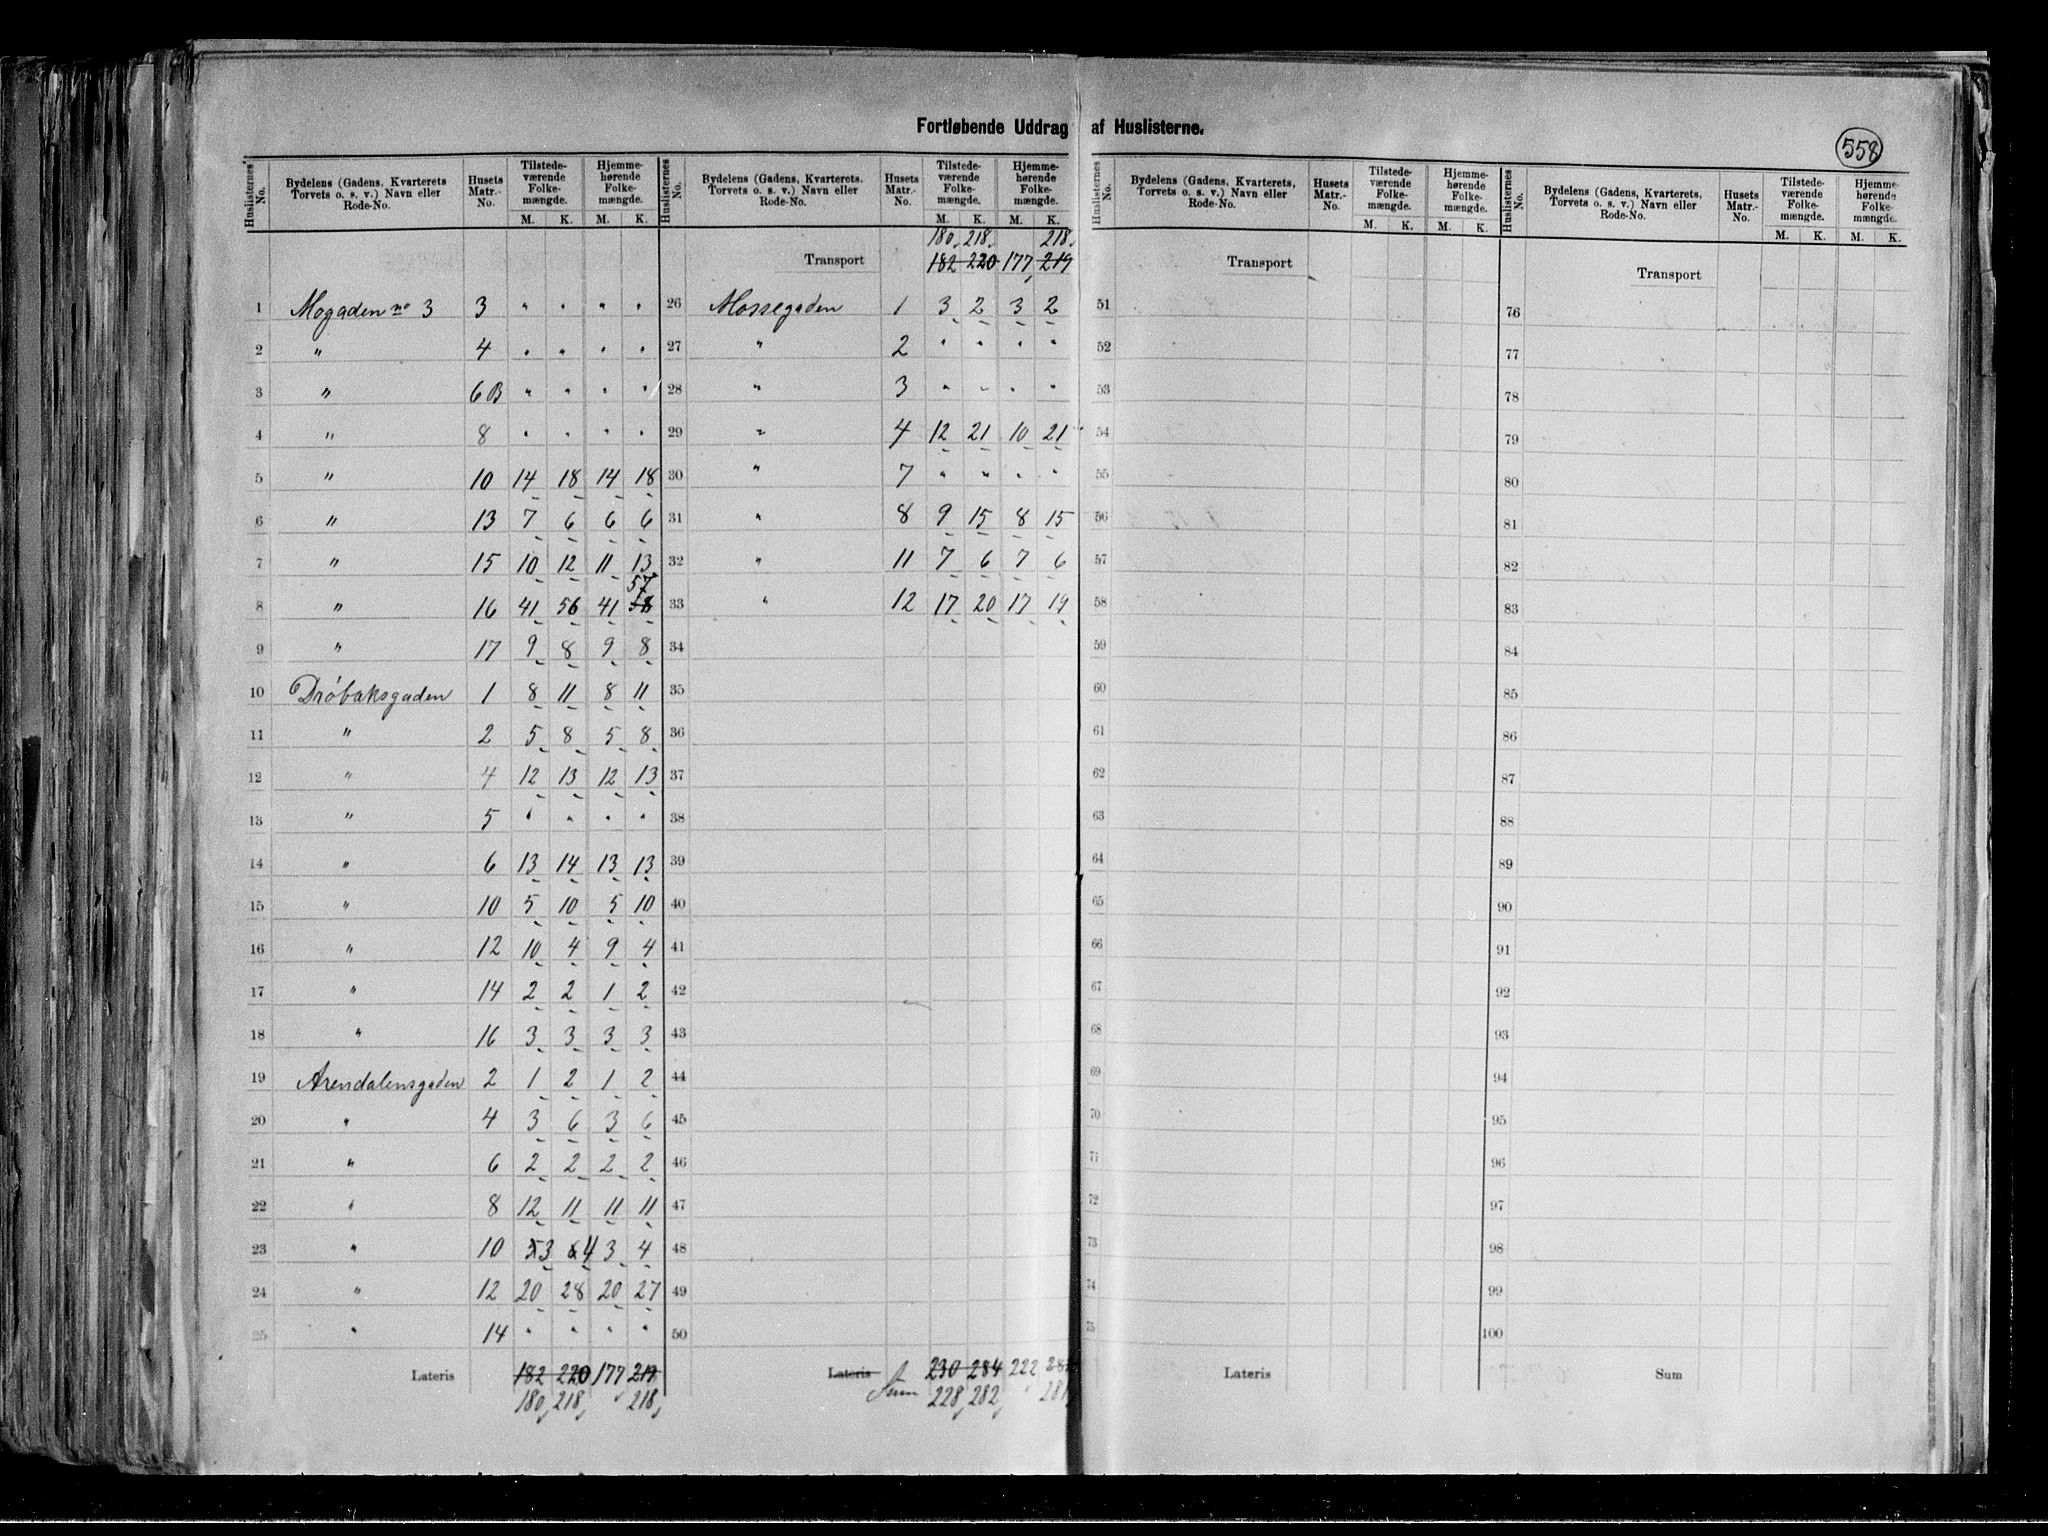 Fortløbende Uddrag af Huslisterne.
558
Huslisternes No. Bydelens (Gadens, Kvarterets, Torvets o. s. v.) Navn eller Rode-No. Husets Matr.-No. Tilstede-værende Folke-mængde. M. K. Hjemme-hørende Folke-mængde. M. K.
1 Mogaden no 3 3 " " " "
2 " 4 " " " "
3 " 6B " " " "
4 " 8 " " " "
5 " 10 14 18 14 18
6 " 13 7 6 6 6
7 " 15 10 12 11 13
57
8 " 16 41 56 41 58
9 " 17 9 8 9 8
10 Drøbaksgaden 1 8 11 8 11
11 " 2 5 8 5 8
12 " 4 12 13 12 13
13 " 5 " " " "
14 " 6 13 14 13 13
15 " 10 5 10 5 10
16 " 12 10 4 9 4
17 " 14 2 2 1 2
18 " 16 3 3 3 3
19 Arendalensgaden 2 1 2 1 2
20 " 4 3 6 3 6
21 " 6 2 2 2 2
22 " 8 12 11 11 11
23 " 10 5 3 6 4 3 4
24 " 12 20 28 20 27
25 " 14 " " " "
Lateris 182 220 177 219
180 218 218
Huslisternes No. Bydelens (Gadens, Kvarterets, Torvets o. s. v.) Navn eller Rode-No. Husets Matr.-No. Tilstede-værende Folke-mængde. M. K. Hjemme-hørende Folke-mængde. M. K.
180 218 218
Transport 182 220 177 219
26 Mossegaden 1 3 2 3 2
27 " 2 " " " "
28 " 3 " " " "
29 " 4 12 21 10 21
30 " 7 " " " "
31 " 8 9 15 8 15
32 " 11 7 6 7 6
33 " 12 17 20 17 19
34
35
36
37
38
39
40
41
42
43
44
45
46
47
48
49
50
Lateris Sum 230 284 222
228 282 281
Huslisternes No. Bydelens (Gadens, Kvarterets, Torvets o. s. v.) Navn eller Rode-No. Husets Matr.-No. Tilstede-værende Folke-mængde. M. K. Hjemme-hørende Folke-mængde. M. K.
Transport
51
52
53
54
55
56
57
58
59
60
61
62
63
64
65
66
67
68
69
70
71
72
73
74
75
Lateris
Huslisternes No. Bydelens (Gadens, Kvarterets, Torvets o. s. v.) Navn eller Rode-No. Husets Matr.-No. Tilstede-værende Folke-mængde. M. K. Hjemme-hørende Folke-mængde. M. K.
Transport
76
77
78
79
80
81
82
83
84
85
86
87
88
89
90
91
92
93
94
95
96
97
98
99
100
Sum